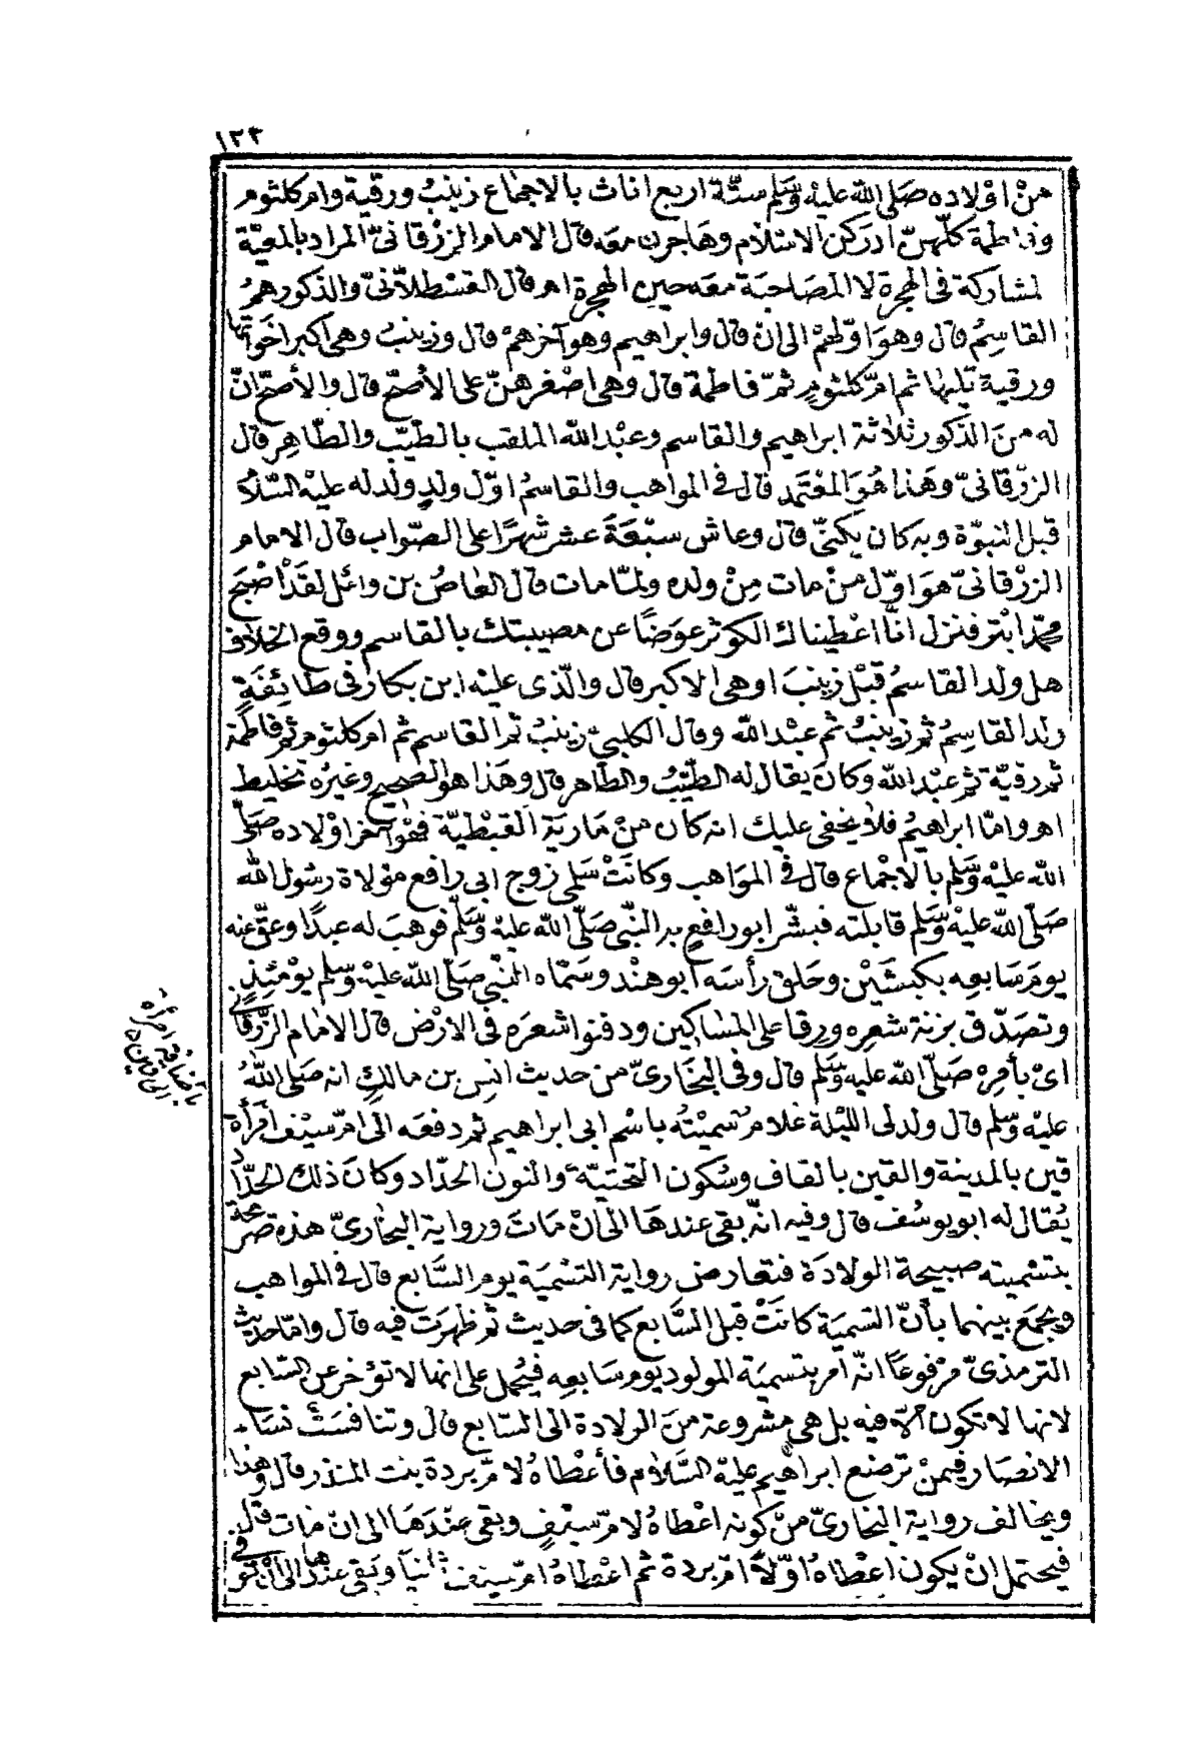 ١٢٣
من اولاده صلى الله عليه وسلم ستة اربع اناث بالاجماع زينب ورقية وام كلثوم
وفاطمة كلهن ادركن الاسلام وهاجرن معه قال الامام الزرقانى المراد بالمعية
لمشاركة فى الهجرة لا المصاحبة معه حين الهجرة اهـ قال القسطلانى والذكور هم
القاسم قال وهو اولهم الى ان قال وابراهيم وهو آخرهم قال وزينب وهى اكبر اخواتها
ورقية تليها ثم ام كلثوم ثم فاطمة قال وهى اصغرهن على الأصح قال والأصح ان
له من الذكور ثلاثة ابراهيم والقاسم وعبد الله الملقب بالطيب والطاهر قال
الزرقانى وهذا هو المعتمد قال فى المواهب والقاسم اول ولد ولد له عليه السلام
قبل النبوة وبه كان يكنى قال وعاش سبعة عشر شهرا على الصواب قال الامام
الزرقانى هو اول من مات من ولده ولما مات قال العاص بن وائل لقد اصبح
محمد ابتر فنزل انا اعطيناك الكوثر عوضا عن مصيبتك بالقاسم ووقع الخلاف
هل ولد القاسم قبل زينب او هى الاكبر قال والذى عليه ابن بكار فى طائفة
ولد القاسم ثم زينب ثم عبد الله وقال الكلبى زينب ثم القاسم ثم ام كلثوم ثم فاطمة
ثم رقية ثم عبد الله وكان يقال له الطيب والطاهر قال وهذا هو الصحيح وغيره تخليط
اهـ واما ابراهيم فلا يخفى عليك انه كان من مارية القبطية فهو آخر اولاده صلى
الله عليه وسلم بالاجماع قال فى المواهب وكانت سلمى زوج ابى رافع مولاة رسول الله
صلى الله عليه وسلم قابلته فبشر ابو رافع به النبى صلى الله عليه وسلم فوهب له عبدا وعق عنه
يوم سابعه بكبشين وحلق رأسه ابو هند وسماه النبى صلى الله عليه وسلم يومئذ
وتصدق بزنة شعره ورقا على المساكين ودفنوا شعره فى الارض قال الامام الزرقانى
اى بأمره صلى الله عليه وسلم قال وفى البخارى من حديث انس بن مالك انه صلى الله
عليه وسلم قال ولد لى الليلة غلام سميته باسم ابى ابراهيم ثم دفعه الى ام سيف امرأة
قين بالمدينة والقين بالقاف وسكون التحتية والنون الحداد وكان ذلك الحداد
يقال له ابو يوسف قال وفيه انه بقى عندها الى ان مات ورواية البخارى هذه صريحة
بتسميته صبيحة الولادة فتعارض رواية التسمية يوم السابع قال فى المواهب
ويجمع بينهما بأن التسمية كانت قبل السابع كما فى حديث ثم ظهرت فيه قال واما حديث
الترمذى مرفوعا انه امر بتسمية المولود يوم سابعه فيحمل على انها لا تؤخر عن السابع
لانها لا تكون الا فيه بل هى مشروعة من الولادة الى السابع قال وتنافست نساء
الانصار فيمن ترضع ابراهيم عليه السلام فأعطاه لام بردة بنت المنذر قال وهذا
ويخالف رواية البخارى من كونه اعطاه لام سيف وبقى عندها الى ان مات قال
فيحتمل ان يكون اعطاه اولا ام بردة ثم اعطاه ام سيف ثانيا وبقى عندها الى ان توفى
باضافة امرأة
الى قين